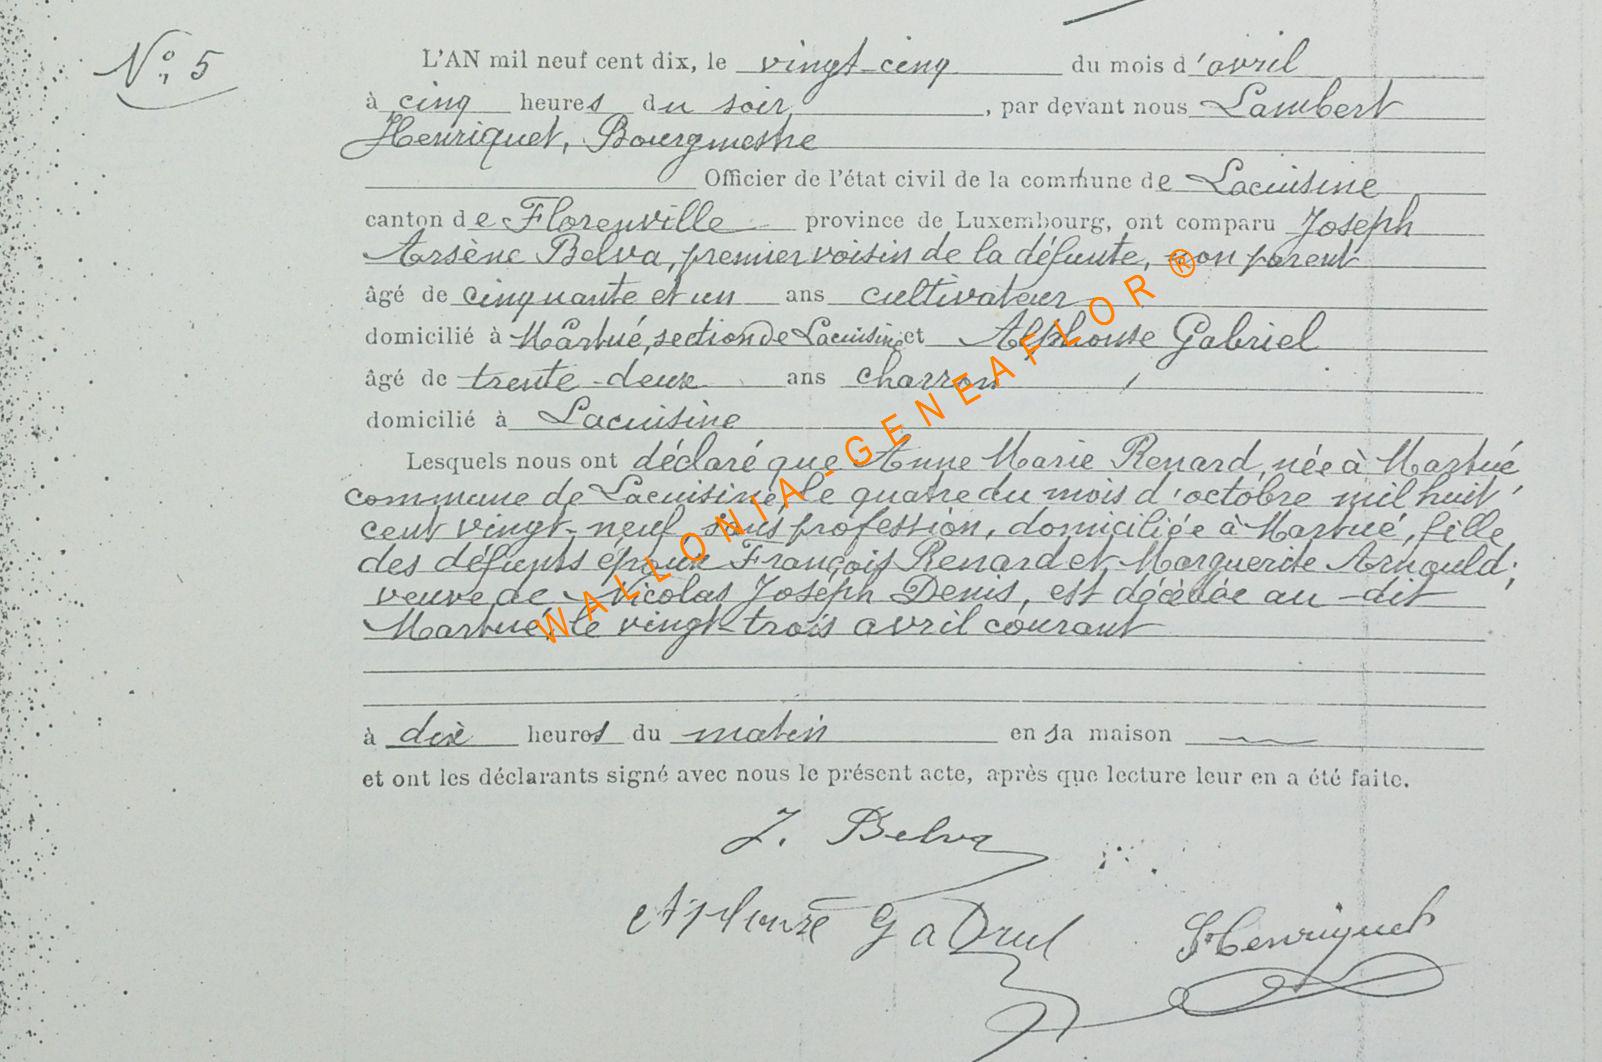 N° 5
L'AN mil neuf cent dix, le vingt-cinq du mois d'avril
à cinq heures du soir, par devant nous Lambert
Henriquet, Bourgmestre
Officier de l'état civil de la commune de Lacuisine
canton de Florenville province de Luxembourg, ont comparu Joseph
Arsène Belva, premier voisin de la défunte, non parent
âgé de cinquante et un ans cultivateur
domicilié à Martué, section de Lacuisine et Alphonse Gabriel
âgé de trente-deux ans charron
domicilié à Lacuisine
Lesquels nous ont déclaré que Anne Marie Renard, née à Martué
commune de Lacuisine, le quatre du mois d'octobre mil huit
cent vingt-neuf, sans profession, domiciliée à Martué, fille
des défunts époux François Renard et Marguerite Arnould;
veuve de Nicolas Joseph Denis, est décédée au-dit
Martué, le vingt-trois avril courant
à dix heures du matin en sa maison
et ont les déclarants signé avec nous le présent acte, après que lecture leur en a été faite.
J. Belva
Alphonse Gabriel
Henriquet
WALLONIA-GENEAFLOR ®